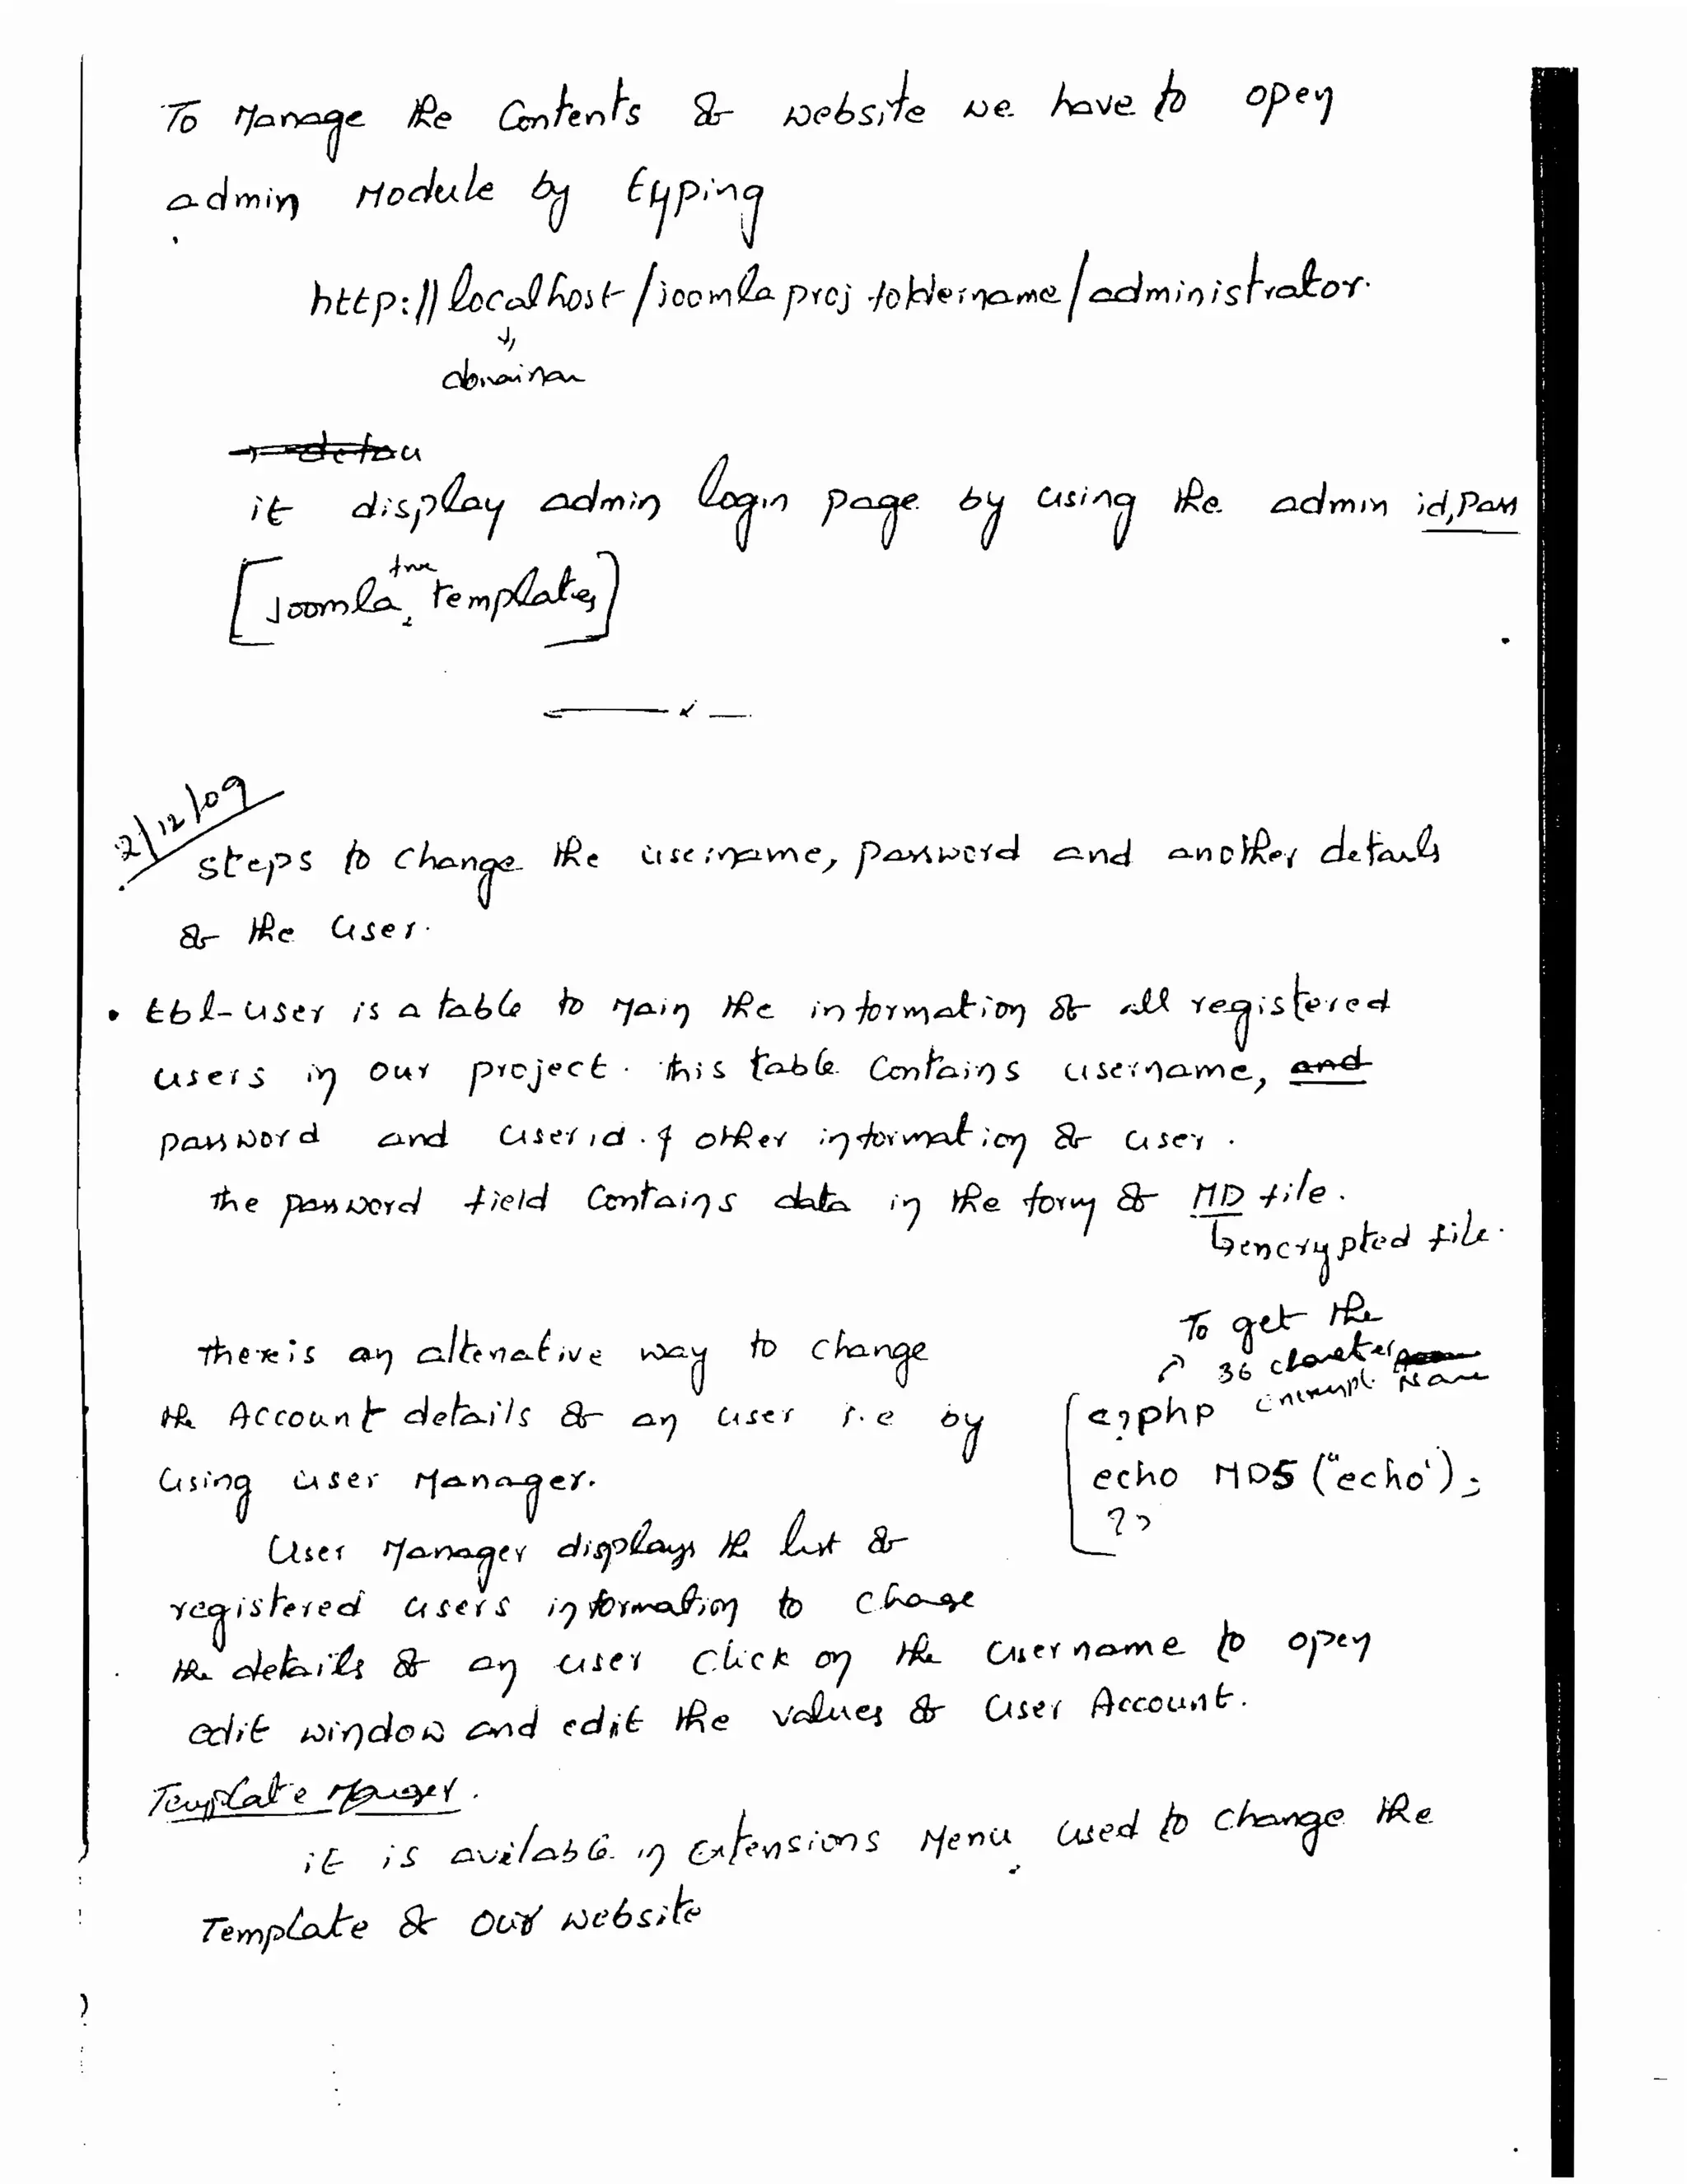 To Manage the Contents of website we have to open
admin Module by typing
http://localhost/joomlaprojfoldername/administrator.
it display admin login page by using the admin id, Pass
[Joomla free templates]
2/12/09
steps to change the username, password and another details
of the user.
• tbl-user is a table to main the information of all registered
users in our project. this table Contains username, and
password and userid. & other information of user.
the password field Contains data in the form of MD file.
↳ encrypted file.
To get the
36
there is an altenative way to change
the Account details of an user i.e by
using user Manager.
<?php
echo MD5("echo');
?>
User Manager displays the list of
registered users information to change
the details of an user click on the username to open
edit window and edit the values of User Account.
Template Manger.
it is avilable in Extensions Menu used to change the
Template of our website